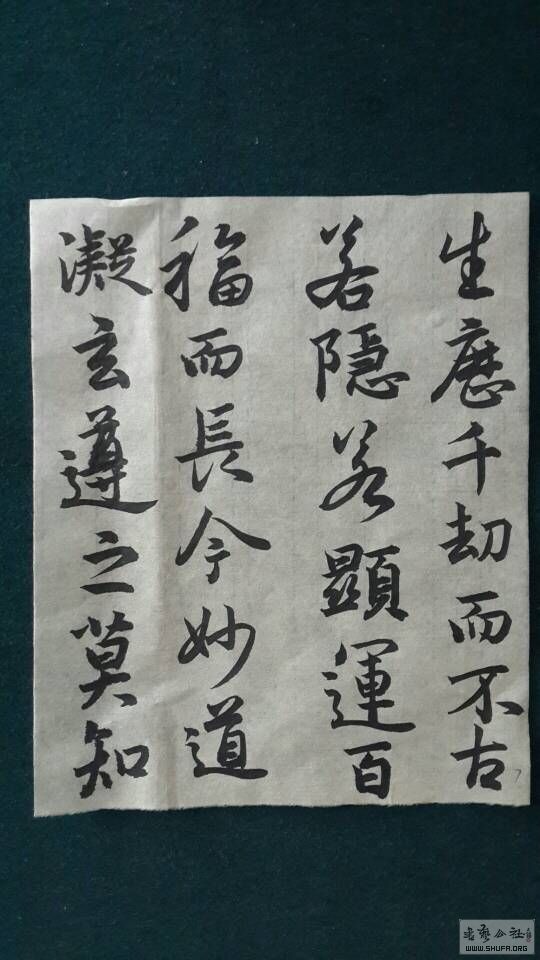 生歷千劫而不古
若隱若顯運百
福而長今妙道
凝玄遵之莫知
WWW.SHUFA.ORG